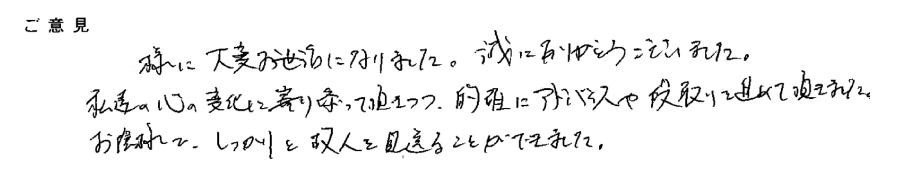 ご意見
様に大変お世話になりました。誠にありがとうございました。
私達の心の変化に寄り添って頂きつつ、的確にアドバイスや段取りを進めて頂きました。
お陰様で、しっかりと故人を見送ることができました。